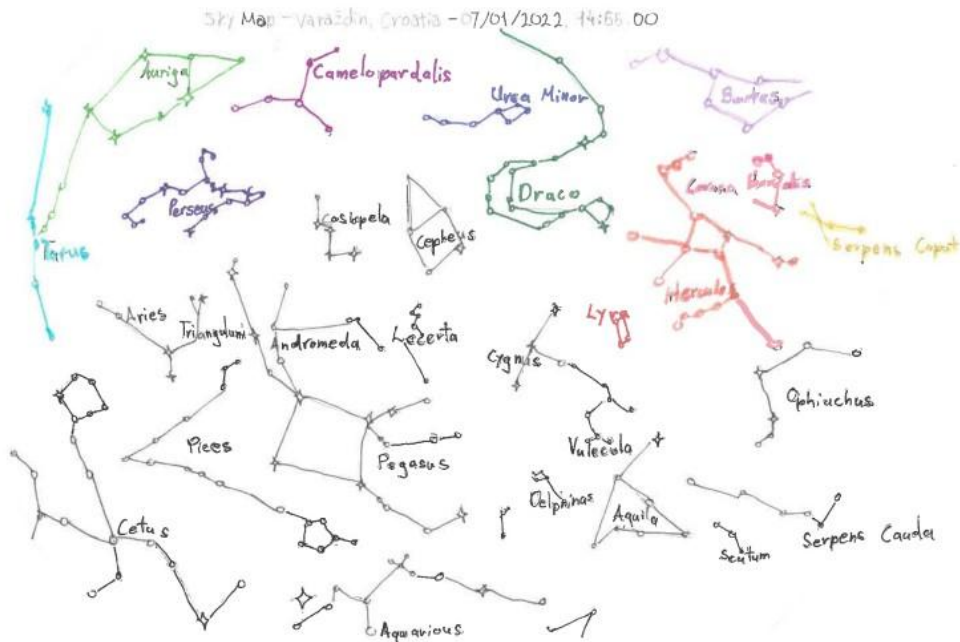 Sky Map - Varaždin, Croatia - 07/01/2022, 14:55.00
Auriga
Camelopardalis
Ursa Minor
Bootes
Perseus
Casiopeia
Cepheus
Draco
Corona Borealis
Serpens Caput
Tarus
Hercules
Aries
Triangulum
Andromeda
Lecerta
Lyra
Cygnus
Ophiuchus
Pices
Pegasus
Vulecula
Cetus
Delphinas
Aquila
Scutum
Serpens Cauda
Aquarious